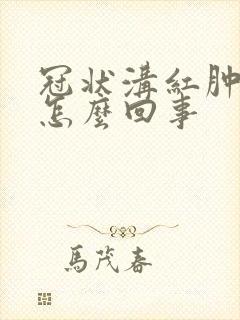 冠状溝紅肿
怎麼回事
馬茂春